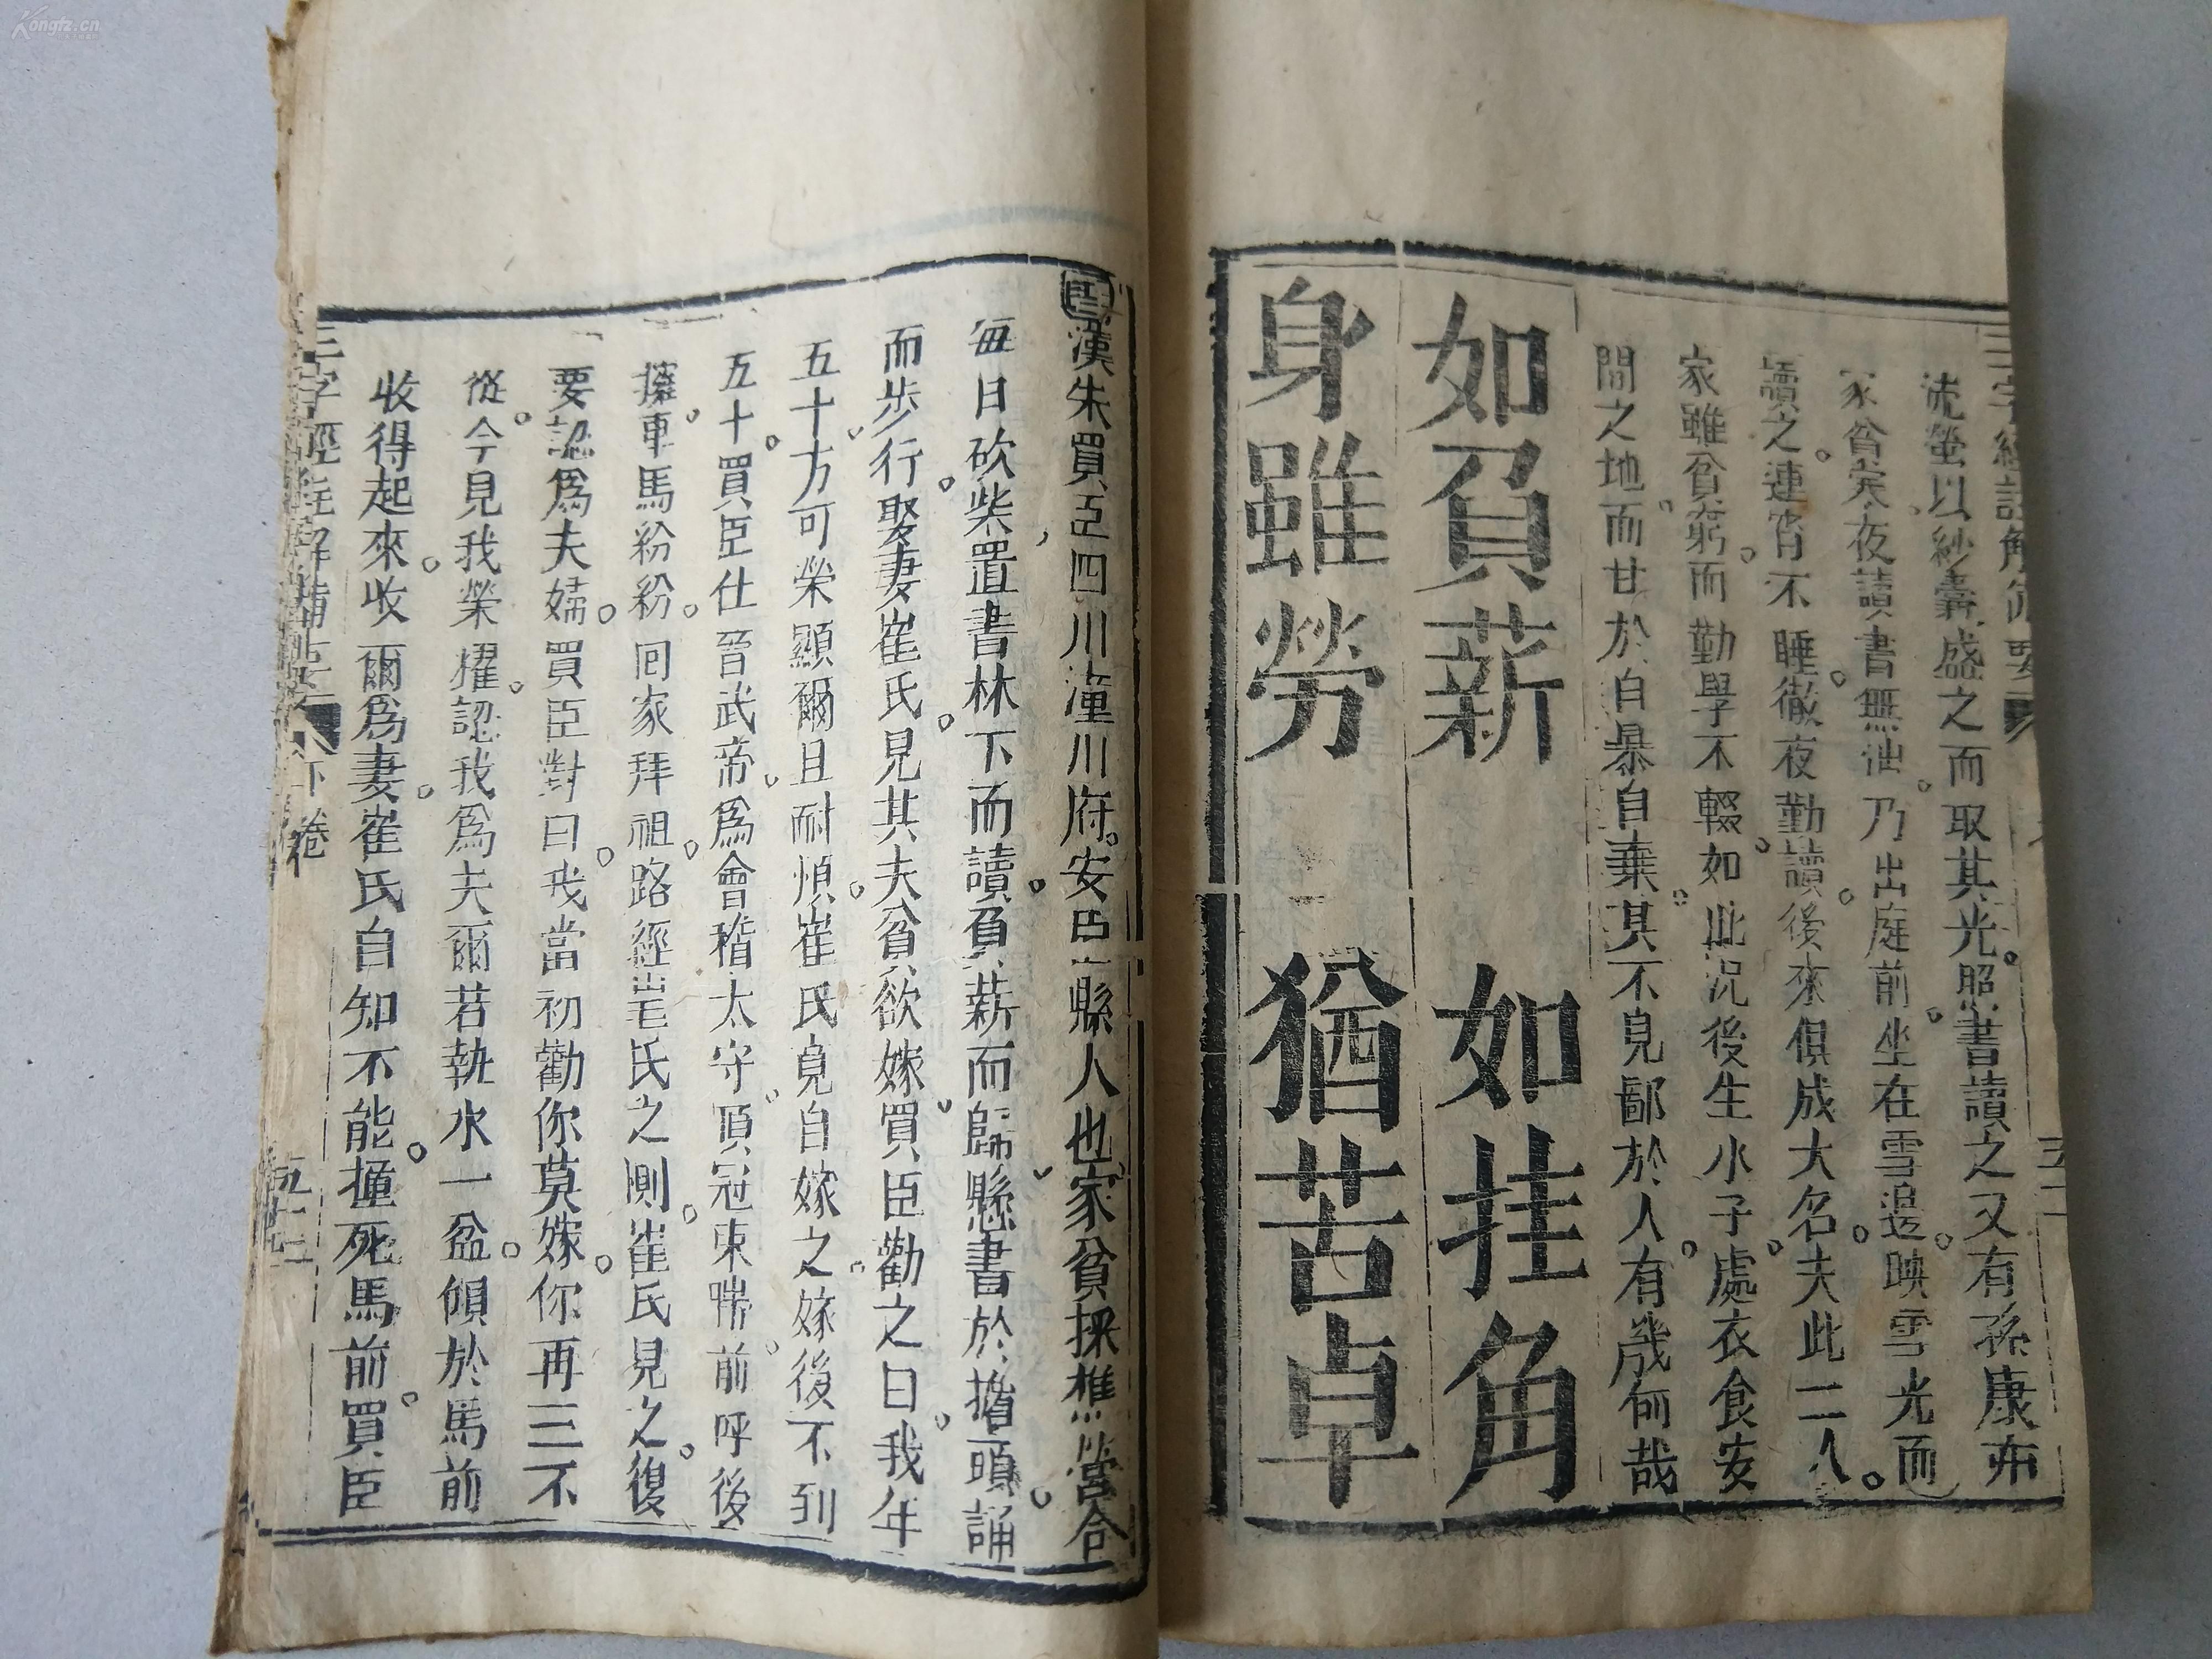 Kongfz.cn
三字經註解備要
流螢以紗囊盛之而取其光照書讀之又有孫康亦
家貧柴夜讀書無油乃出庭前坐在雪邊映雪光而
讀之連宵不睡徹夜勤讀後來俱成大名夫此二人
家雖貧窮而勤學不輟如此况後生小子處衣食安
閒之地而甘於自暴自棄其不見鄙於人有幾何哉
如負薪 如挂角
身雖勞 猶苦卓
漢朱買臣四川潼川府安縣人也家貧採樵營合
每日砍柴置書林下而讀負薪而歸懸書於擔頭誦
而步行娶妻崔氏見其夫貧欲嫁買臣勸之曰我年
五十方可榮顯爾且耐煩崔氏竟自嫁之嫁後不到
五十買臣仕晉武帝為會稽太守頂冠束帶前呼後
擁車馬紛紛回家拜祖路經崔氏之側崔氏見之復
要認為夫婦買臣對曰我當初勸你莫嫁你再三不
從今見我榮耀認我為夫爾若執水一盆傾於馬前
收得起來收爾為妻崔氏自知不能撞死馬前買臣
三字經註解備要 下卷 五十二